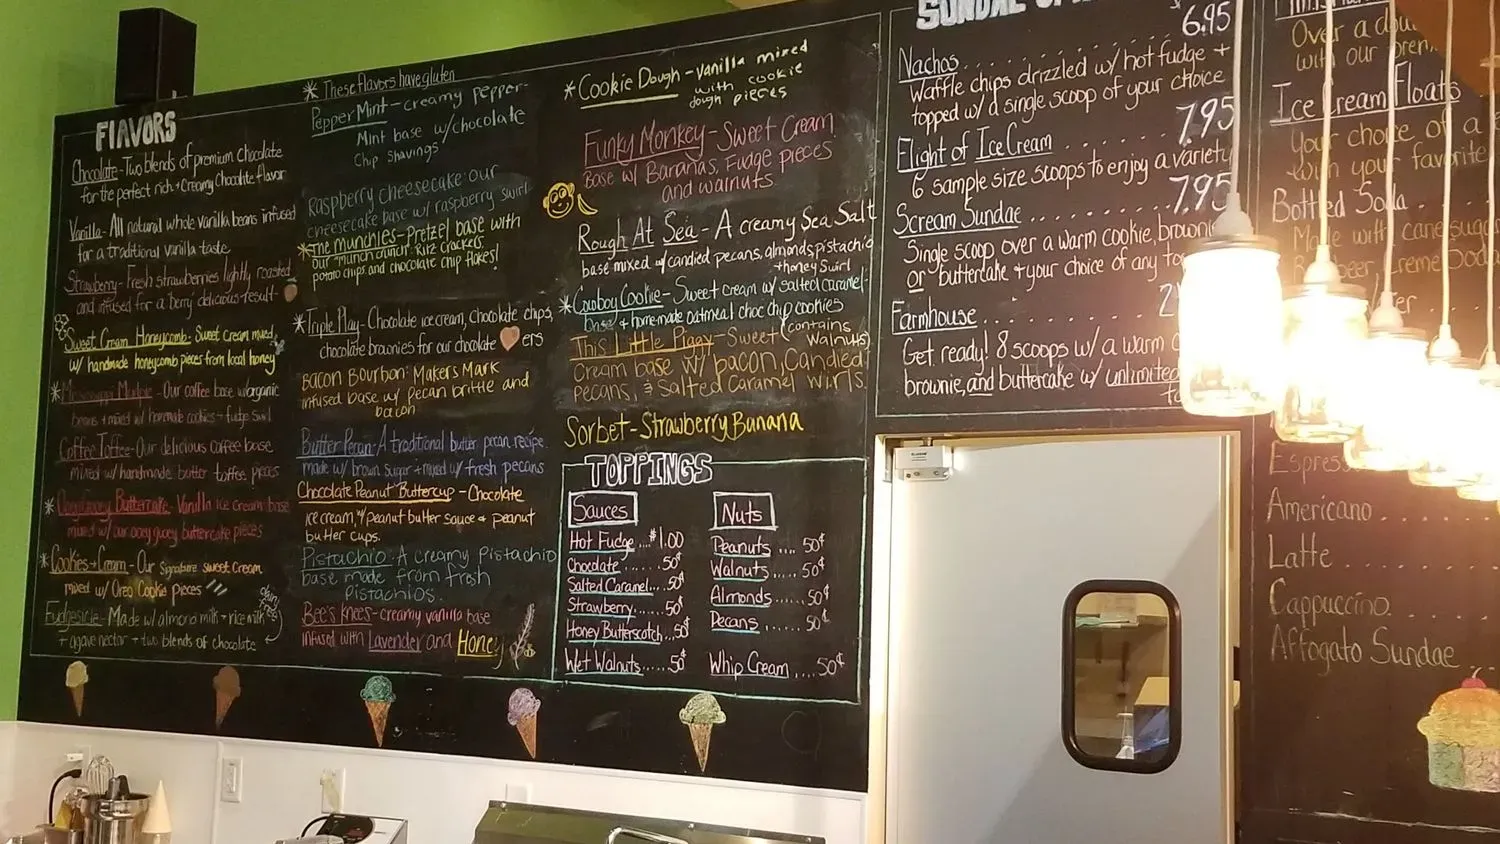 FlAVORS
Chocolate - Two blends of premium Chocolate
for the perfect rich + Creamy Chocolate flavor
Vanilla - All natural whole vanilla beans infused
for a traditional vanilla taste
Strawberry - Fresh strawberries lightly roasted
and infused for a berry delicious result
Sweet Cream Honeycomb - Sweet cream mixed
w/ handmade honeycomb pieces from local honey
* Mississippi Mudpie - Our coffee base w/organic
beans + mixed w/ homemade cookies + fudge swirl
Coffee Toffee - Our delicious coffee base
mixed w/ handmade butter toffee pieces
* Ooey Gooey Buttercake - Vanilla ice cream base
mixed w/ our ooey gooey buttercake pieces
* Cookies + Cream - Our signature sweet cream
mixed w/ Oreo Cookie pieces
Fudgesicle - Made w/ almond milk + rice milk
+ agave nectar + two blends of chocolate
dairy free
* These flavors have gluten
Pepper Mint - creamy pepper-
Mint base w/chocolate
Chip shavings
Raspberry cheesecake: our
cheesecake base w/ raspberry swirl
* The munchies - Pretzel base with
our "munch crunch" Ritz crackers
potato chips and chocolate chip flakes!
* Triple Play - Chocolate ice cream, chocolate chips,
chocolate brownies for our chocolate ers
Bacon Bourbon: Makers Mark
infused base w/ pecan brittle and
bacon
Butter Pecan - A traditional butter pecan recipe
made w/ brown sugar + mixed w/ fresh pecans
Chocolate Peanut Buttercup - Chocolate
ice cream, w/ peanut butter sauce + peanut
butter cups.
Pistachio: A creamy Pistachio
base made from fresh
Pistachios.
Bee's Knees - creamy vanilla base
infused with Lavender and Honey
* Cookie Dough - vanilla mixed
with cookie
dough pieces
Funky Monkey - Sweet Cream
Base w/ Bananas, Fudge pieces
and walnuts
Rough At Sea - A creamy Sea Salt
base mixed w/candied pecans, almonds, pistachio
+ honey swirl
* Cowboy Cookie - Sweet cream w/ salted caramel
base + homemade oatmeal choc chip cookies
(contains walnuts)
This Little Piggy - Sweet
Cream base w/ bacon, Candied
pecans, & Salted Caramel wirls.
Sorbet - Strawberry Banana
TOPPINGS
Sauces
Hot Fudge...$1.00
Chocolate......50¢
Salted Caramel...50¢
Strawberry.....50¢
Honey Butterscotch...50¢
Wet Walnuts......50¢
Nuts
Peanuts....50¢
Walnuts....50¢
Almonds.....50¢
Pecans......50¢
Whip Cream....50¢
SUNDAE
Nachos........$6.95
Waffle chips drizzled w/ hot fudge +
topped w/ a single scoop of your choice
Flight of Ice Cream........7.95
6 sample size scoops to enjoy a variety
Scream Sundae........7.95
Single scoop over a warm cookie, brownie
or buttercake + your choice of any
Farmhouse........2
Get ready! 8 scoops w/ a warm
brownie, and buttercake w/ unlimited
Over a
with our
Ice Cream Floats
Your choice of a
with your favorite
Bottled Soda
Made with cane sugar
beer, Creme Soda
Espress
Americano....
Latte....
Cappuccino....
Affogato Sundae..